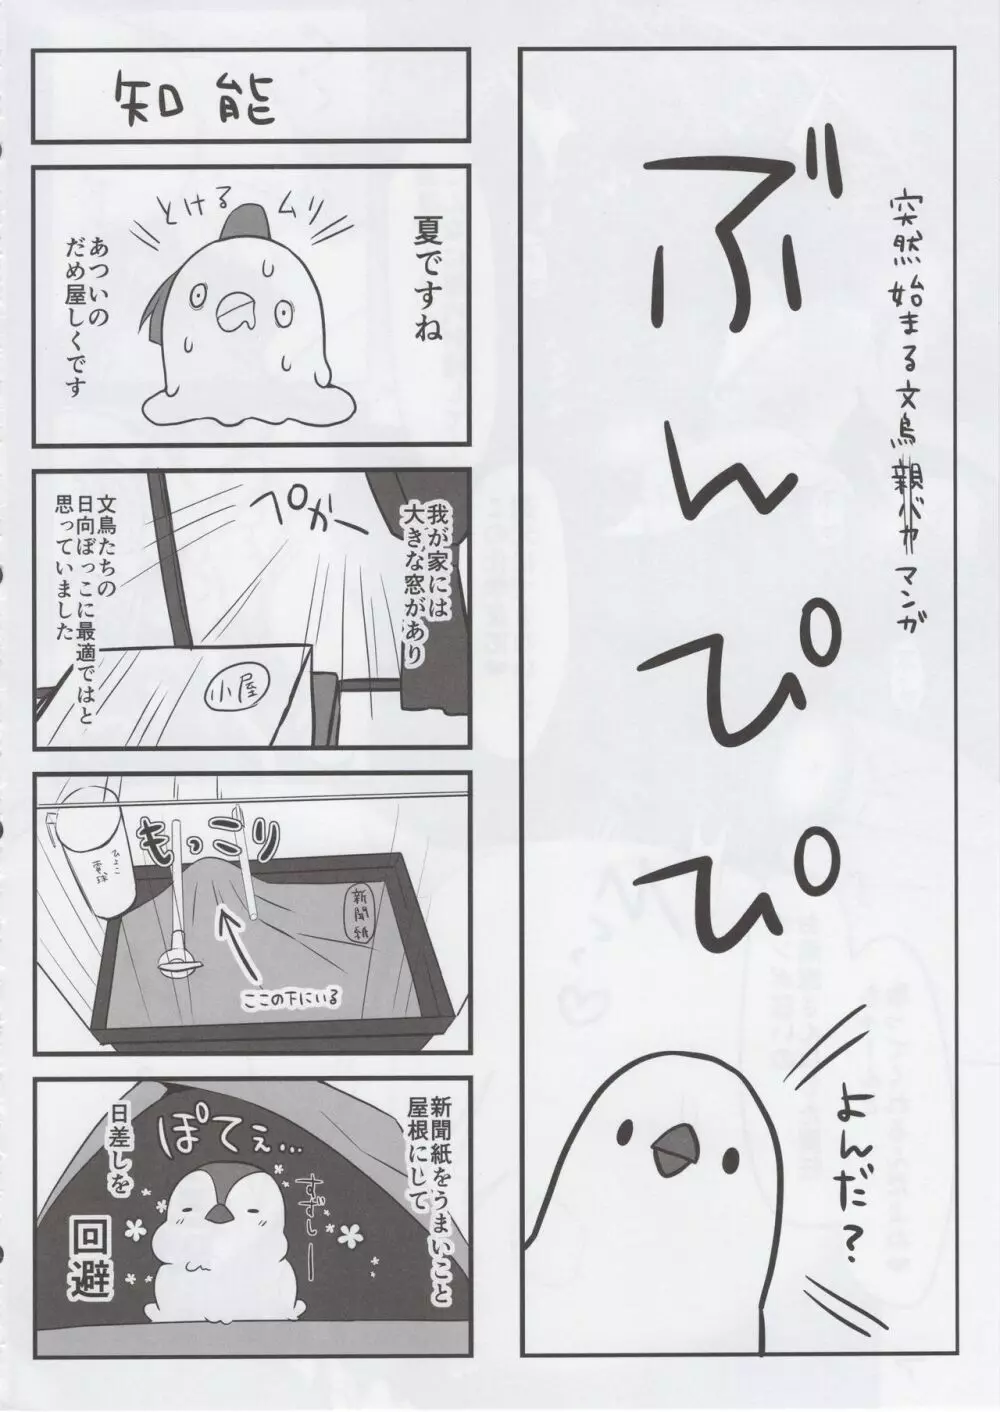 突然始まる文鳥親バカマンガ
ぶんぴぴ
よんだ?
知能
夏ですね
ムリ
とける
あついの
だめ屋しくです
我が家には
大きな窓があり
ペカー
小屋
文鳥たちの
日向ぼっこに最適ではと
思っていました
もっこり
新聞紙
ひよこ
電球
ここの下にいる
新聞紙をうまいこと
屋根にして
ぽてぇ…
すずしー
日差しを
回避